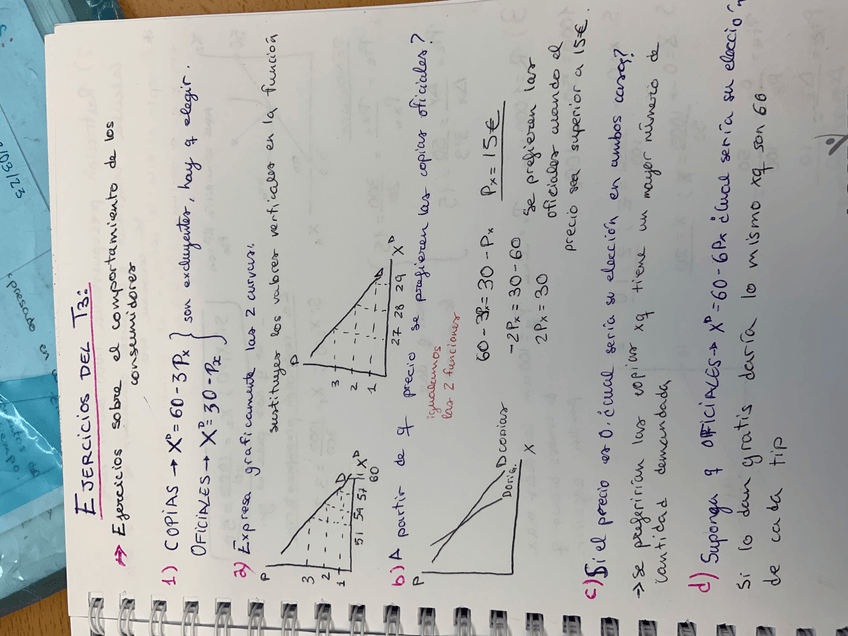 EJERCICIOS DEL T3:
→ Ejercicios sobre el comportamiento de los
consumidores
1) COPIAS → Xᴰ = 60 - 3Px } son excluyentes, hay q elegir.
OFICIALES → Xᴰ = 30 - Px
a) Expresa graficamente las 2 curvas.
sustituyes los valores verticales en la función
P
3
2
1
D
Xᴰ
51 54 57 60
P
3
2
1
D
Xᴰ
27 28 29
b) A partir de q precio se prefieren las copias oficiales?
igualamos
las 2 funciones
P
D copias
D orig.
X
60 - 3Px = 30 - Px
-2Px = 30 - 60
2Px = 30
Px = 15€
se prefieren las
oficiales cuando el
precio sea superior a 15€
c) Si el precio es 0. ¿cual sería su elección en ambos casos?
→ se preferirían las copias xq tiene un mayor número de
cantidad demandada
d) Suponga q OFICIALES → Xᴰ = 60 - 6Px ¿cual sería su eleccion
Si lo dan gratis daría lo mismo xq son 60
de cada tip